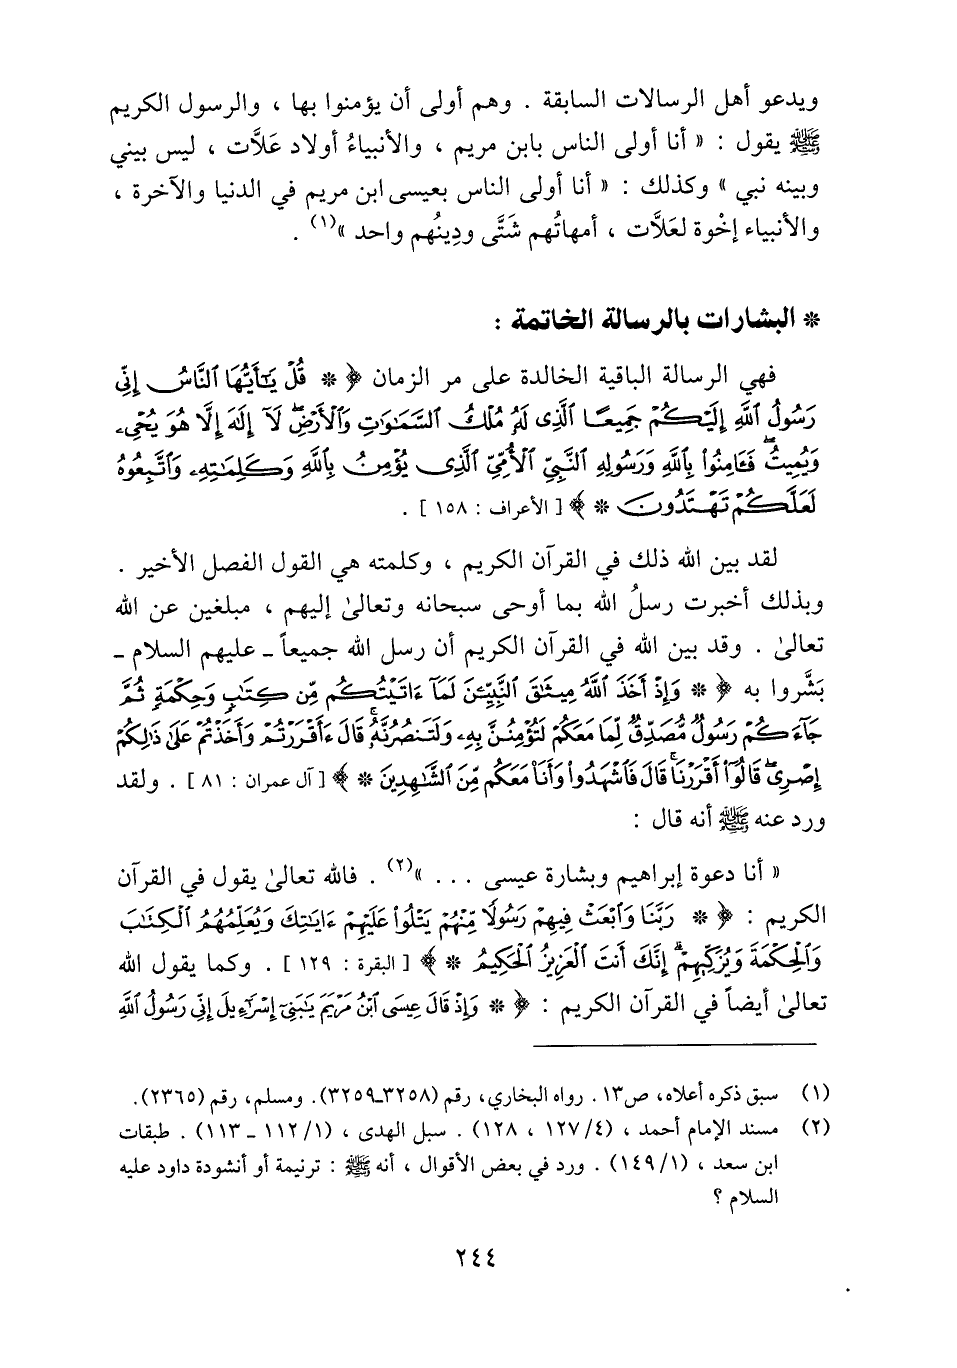 ويدعو أهل الرسالات السابقة . وهم أولى أن يؤمنوا بها ، والرسول الكريم
ﷺ يقول : « أنا أولى الناس بابن مريم ، والأنبياءُ أولاد عَلاَّت ، ليس بيني
وبينه نبي » وكذلك : « أنا أولى الناس بعيسى ابن مريم في الدنيا والآخرة ،
والأنبياء إخْوة لعَلاَّت ، أمهاتُهم شَتَّى ودِينُهم واحد »(١) .
* البشارات بالرسالة الخاتمة :
فهي الرسالة الباقية الخالدة على مر الزمان ﴿ * قُلْ يَٰٓأَيُّهَا ٱلنَّاسُ إِنِّي
رَسُولُ ٱللَّهِ إِلَيْكُمْ جَمِيعًا ٱلَّذِى لَهُۥ مُلْكُ ٱلسَّمَٰوَٰتِ وَٱلْأَرْضِۖ لَآ إِلَٰهَ إِلَّا هُوَ يُحْىِۦ
وَيُمِيتُۖ فَـَٔامِنُوا۟ بِٱللَّهِ وَرَسُولِهِ ٱلنَّبِىِّ ٱلْأُمِّىِّ ٱلَّذِى يُؤْمِنُ بِٱللَّهِ وَكَلِمَٰتِهِۦ وَٱتَّبِعُوهُ
لَعَلَّكُمْ تَهْتَدُونَ * ﴾ [ الأعراف : ١٥٨ ] .
لقد بين الله ذلك في القرآن الكريم ، وكلمته هي القول الفصل الأخير .
وبذلك أخبرت رسلُ الله بما أوحى سبحانه وتعالىٰ إليهم ، مبلغين عن الله
تعالىٰ . وقد بين الله في القرآن الكريم أن رسل الله جميعاً ـ عليهم السلام ـ
بَشَّروا به ﴿ * وَإِذْ أَخَذَ ٱللَّهُ مِيثَٰقَ ٱلنَّبِيِّـۧنَ لَمَآ ءَاتَيْتُكُم مِّن كِتَٰبٍ وَحِكْمَةٍ ثُمَّ
جَآءَكُمْ رَسُولٌ مُّصَدِّقٌ لِّمَا مَعَكُمْ لَتُؤْمِنُنَّ بِهِۦ وَلَتَنصُرُنَّهُۥۚ قَالَ ءَأَقْرَرْتُمْ وَأَخَذْتُمْ عَلَىٰ ذَٰلِكُمْ
إِصْرِىۖ قَالُوٓا۟ أَقْرَرْنَاۚ قَالَ فَٱشْهَدُوا۟ وَأَنَا۠ مَعَكُم مِّنَ ٱلشَّٰهِدِينَ * ﴾ [ آل عمران : ٨١ ] . ولقد
ورد عنه ﷺ أنه قال :
« أنا دعوة إبراهيم وبشارة عيسى . . . »(٢) . فالله تعالىٰ يقول في القرآن
الكريم : ﴿ * رَبَّنَا وَٱبْعَثْ فِيهِمْ رَسُولًا مِّنْهُمْ يَتْلُوا۟ عَلَيْهِمْ ءَايَٰتِكَ وَيُعَلِّمُهُمُ ٱلْكِتَٰبَ
وَٱلْحِكْمَةَ وَيُزَكِّيهِمْۚ إِنَّكَ أَنتَ ٱلْعَزِيزُ ٱلْحَكِيمُ * ﴾ [ البقرة : ١٢٩ ] . وكما يقول الله
تعالىٰ أيضاً في القرآن الكريم : ﴿ * وَإِذْ قَالَ عِيسَى ٱبْنُ مَرْيَمَ يَٰبَنِىٓ إِسْرَٰٓءِيلَ إِنِّى رَسُولُ ٱللَّهِ
(١) سبق ذكره أعلاه، ص١٣ . رواه البخاري، رقم (٣٢٥٨ـ٣٢٥٩). ومسلم، رقم (٢٣٦٥).
(٢) مسند الإمام أحمد ، (٤/ ١٢٧ ، ١٢٨) . سبل الهدى ، (١/ ١١٢ ـ ١١٣) . طبقات
ابن سعد ، (١/ ١٤٩) . ورد في بعض الأقوال ، أنه ﷺ : ترنيمة أو أنشودة داود عليه
السلام ؟
٢٤٤